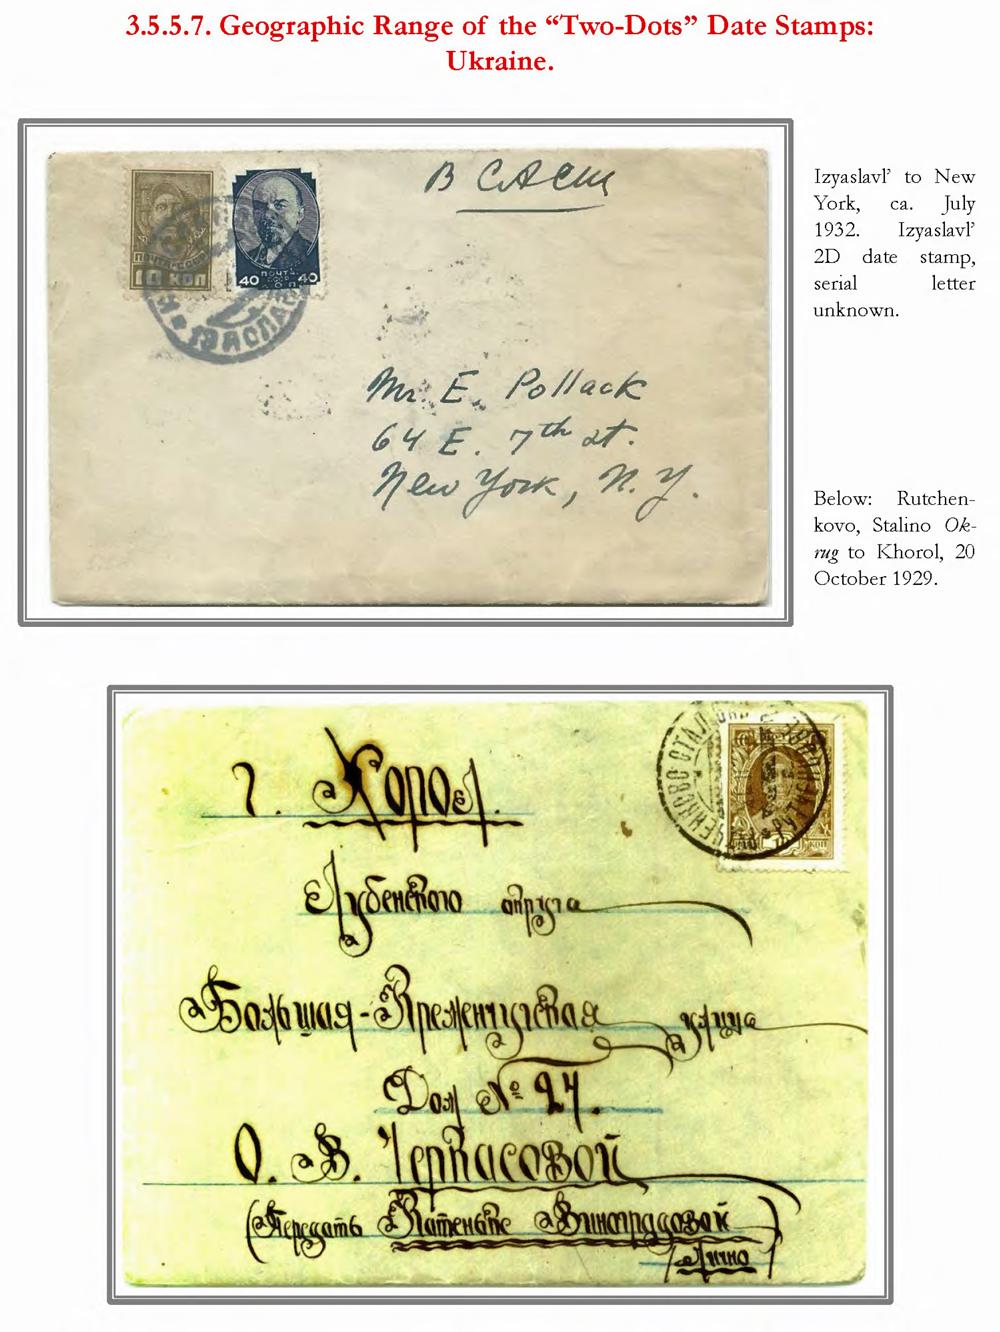 3.5.5.7. Geographic Range of the “Two-Dots” Date Stamps:
Ukraine.
В САСШ
ПОЧТА СССР
10 КОП
ПОЧТА
СССР
40 КОП 40
ИЗЯСЛАВ
Mr. E. Pollack
64 E. 7th st.
New York, N.Y.
Izyaslavl’ to New
York, ca. July
1932. Izyaslavl’
2D date stamp,
serial letter
unknown.
Below: Rutchen-
kovo, Stalino Ok-
rug to Khorol, 20
October 1929.
г. Хорол.
Лубенского округа
Большая-Кременчугская улица
Дом № 27.
О. В. Черкасовой
(Передать Катеньке Виноградовой)
Лично